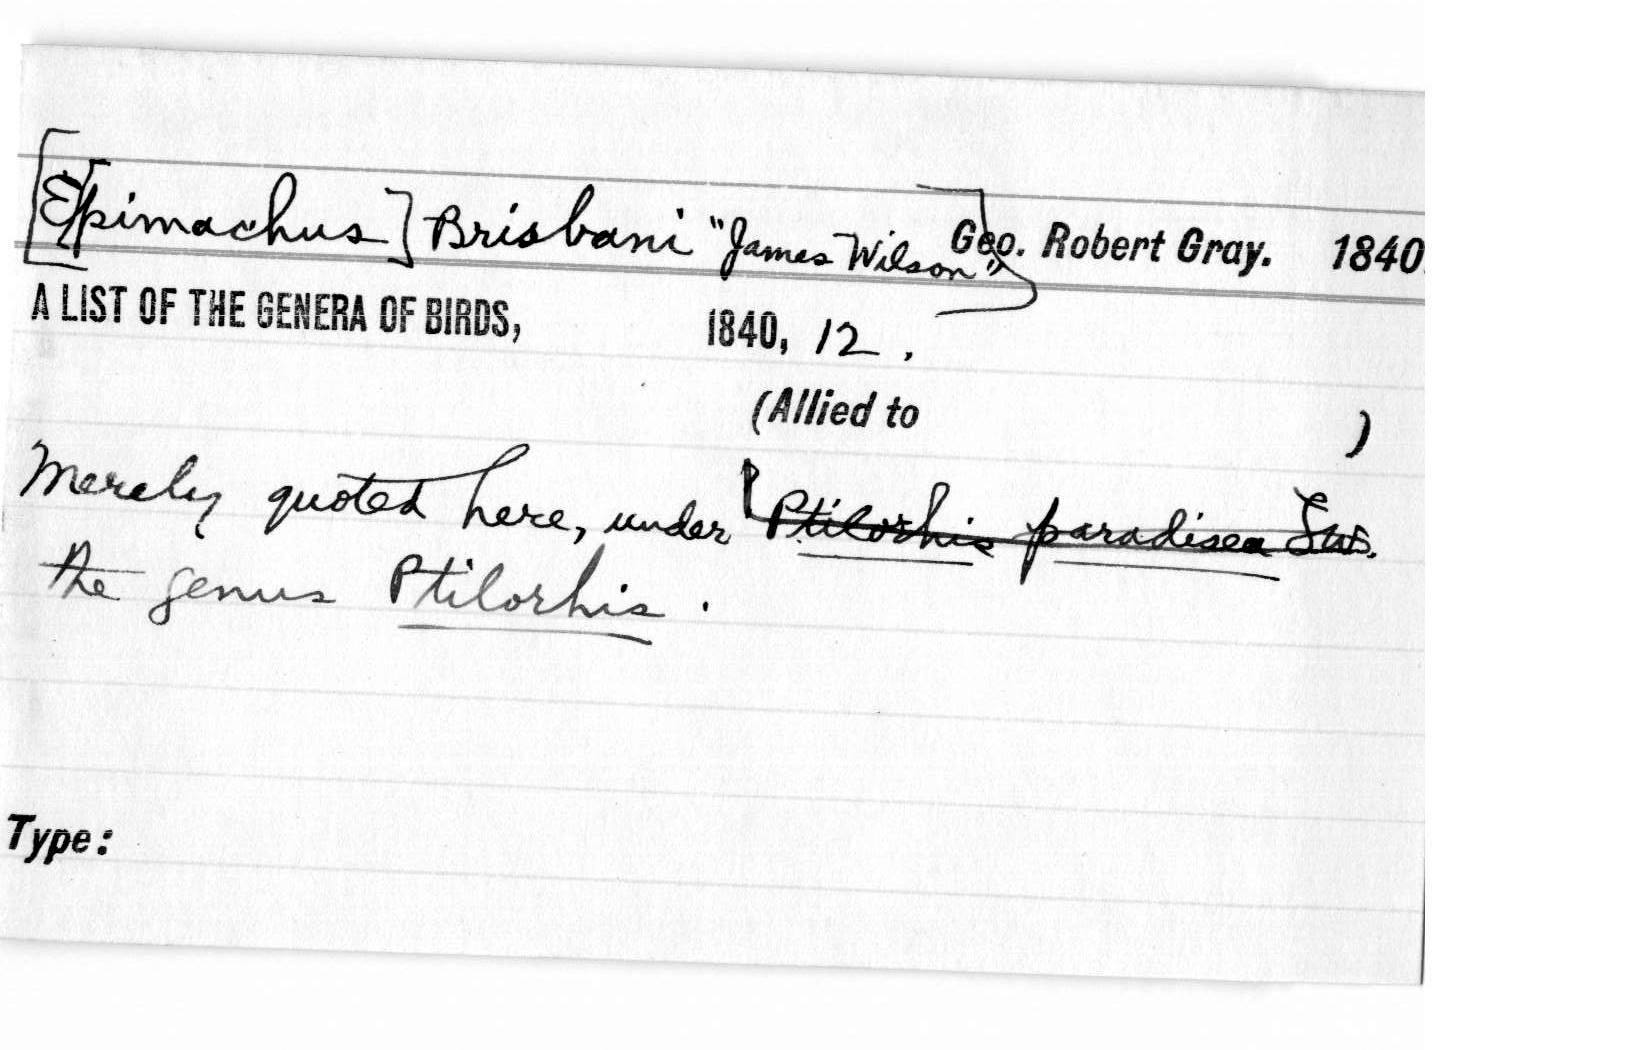 [[Epimachus] Brisbani "James Wilson"] Geo. Robert Gray. 1840.
A LIST OF THE GENERA OF BIRDS, 1840, 12.
(Allied to )
Merely quoted here, under Ptilorhis paradisea Sws.
the genus Ptilorhis.
Type: